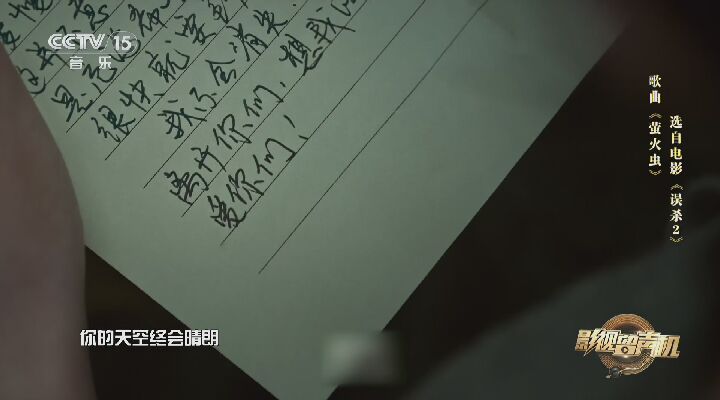 CCTV 15
音乐
很快就要
我不会消失
离开你们，想我
爱你们！
歌曲《萤火虫》
选自电影《误杀2》
你的天空终会晴朗
影视留声机